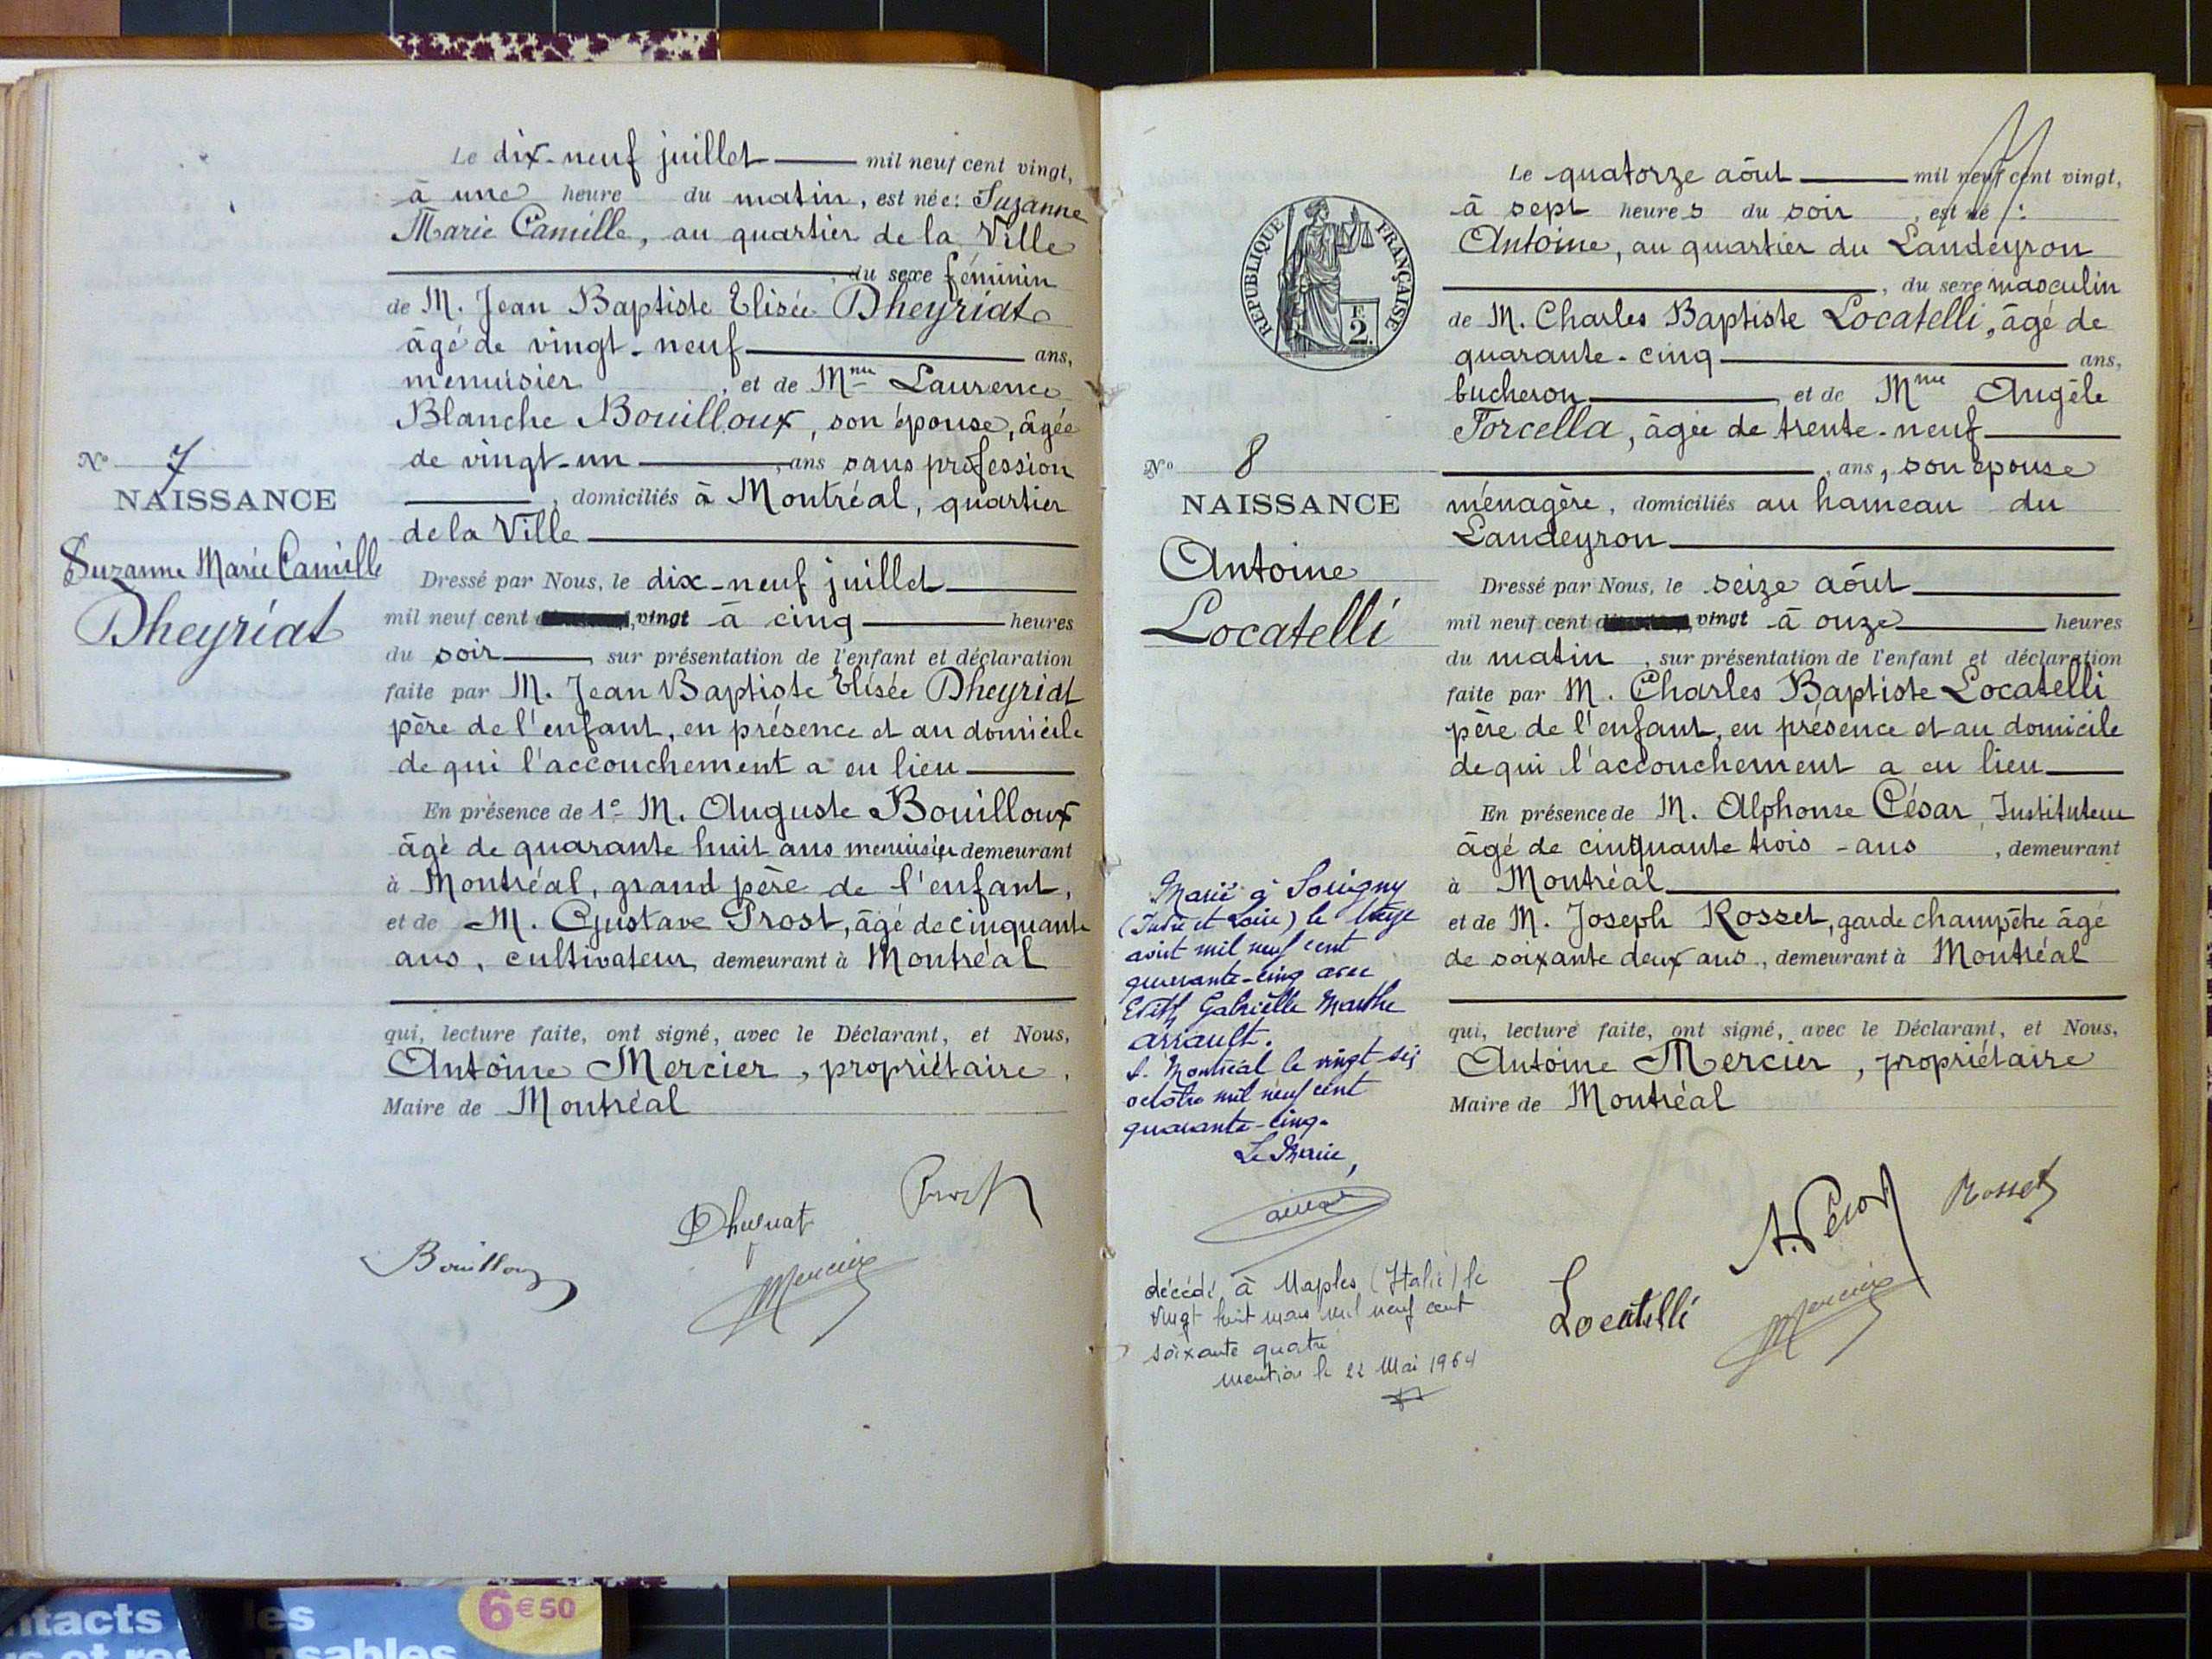 Le dix-neuf juillet mil neuf cent vingt,
à une heure du matin, est née: Suzanne
Marie Camille, au quartier de la Ville
, du sexe féminin
de M. Jean Baptiste Elisée Dheyriat
âgé de vingt-neuf ans,
menuisier, et de Mme Laurence
Blanche Bouilloux, son épouse, âgée
de vingt-un, ans sans profession
, domiciliés à Montréal, quartier
de la Ville
No 7
NAISSANCE
Suzanne Marie Camille
Dheyriat
Dressé par Nous, le dix-neuf juillet
mil neuf cent vingt à cinq heures
du soir, sur présentation de l'enfant et déclaration
faite par M. Jean Baptiste Elisée Dheyriat
père de l'enfant, en présence et au domicile
de qui l'accouchement a eu lieu
En présence de 1o M. Auguste Bouilloux
âgé de quarante huit ans menuisier demeurant
à Montréal, grand père de l'enfant,
et de M. Gustave Prost, âgé de cinquante
ans, cultivateur, demeurant à Montréal
qui, lecture faite, ont signé, avec le Déclarant, et Nous,
Antoine Mercier, propriétaire,
Maire de Montréal
Prost
Dheyriat
Bouilloux
Mercier
RÉPUBLIQUE FRANÇAISE
F.
2.
Le quatorze août mil neuf cent vingt,
à sept heures du soir, est né :
Antoine, au quartier du Landeyron
, du sexe masculin
de M. Charles Baptiste Locatelli, âgé de
quarante-cinq ans,
bucheron, et de Mme Angèle
Forcella, âgée de trente-neuf
, ans, son épouse
ménagère, domiciliés au hameau du
Landeyron
No 8
NAISSANCE
Antoine
Locatelli
Dressé par Nous, le seize août
mil neuf cent vingt à onze heures
du matin, sur présentation de l'enfant et déclaration
faite par M. Charles Baptiste Locatelli
père de l'enfant, en présence et au domicile
de qui l'accouchement a eu lieu
En présence de M. Alphonse César, Instituteur
âgé de cinquante trois - ans, demeurant
à Montréal
et de M. Joseph Rosset, garde champêtre âgé
de soixante deux ans, demeurant à Montréal
qui, lecture faite, ont signé, avec le Déclarant, et Nous,
Antoine Mercier, propriétaire
Maire de Montréal
Marié à Sorigny
(Indre et Loire) le
août mil neuf cent
quarante-cinq avec
Edith Gabrielle Marthe
Arrault.
à Montréal le vingt-six
octobre mil neuf cent
quarante-cinq.
Le Maire,
décédé à Naples (Italie) le
vingt huit mars mil neuf cent
soixante quatre
mention le 22 Mai 1964
A. César
Rosset
Locatelli
Mercier
6€50
ntacts
les
nsables